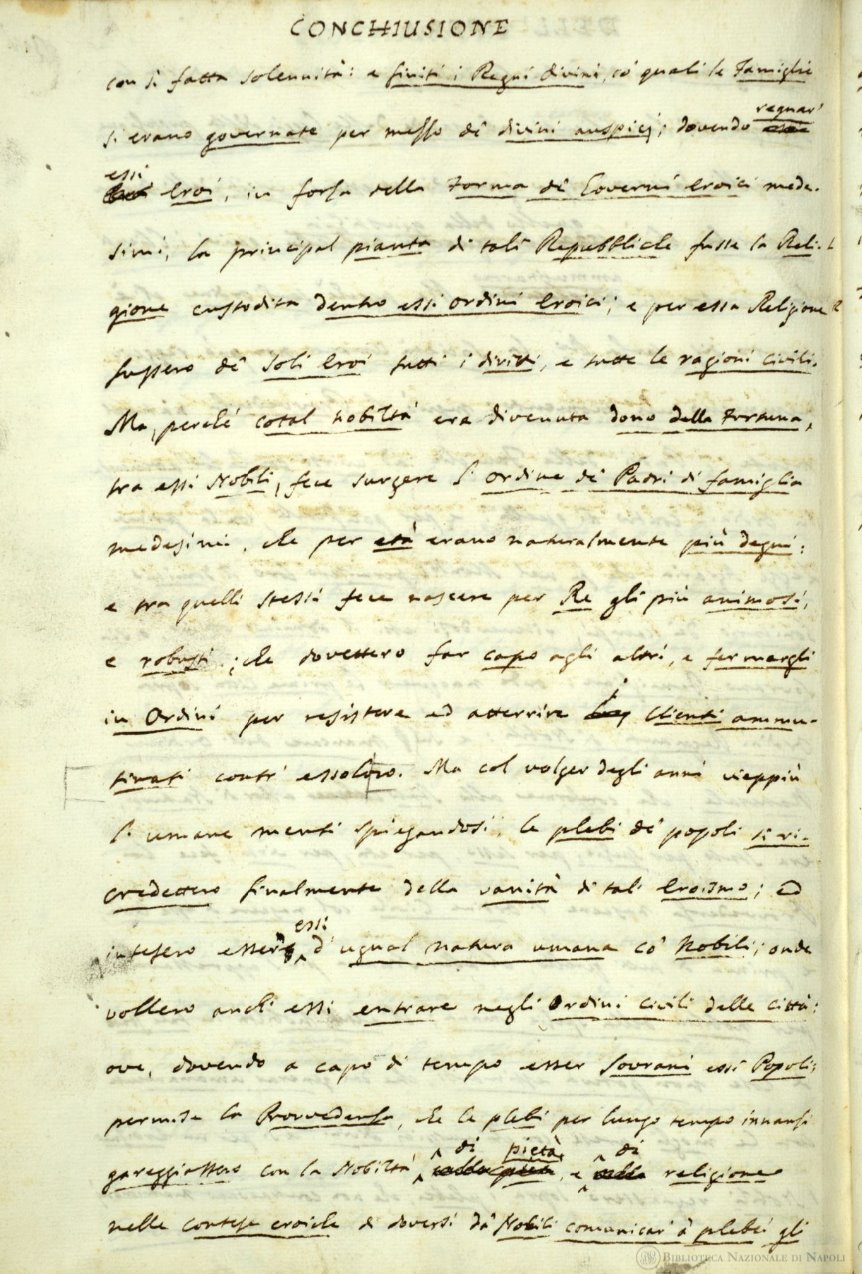 CONCHIUSIONE
con sì fatta solennità: e finiti i Regni divini, co' quali le Famiglie
si erano governate per messo de' divini auspicj; dovendo regnar'
essi Eroi, in forsa della Forma de' Governi Eroici mede-
simi, la principal pianta di tali Repubbliche fusse la Reli-
gione custodita dentro essi Ordini Eroici; e per essa Religione
fussero de' soli Eroi tutti i diritti, e tutte le ragioni civili.
Ma, perché cotal Nobiltà era divenuta dono della Fortuna,
tra essi Nobili, fece surgere l' Ordine de' Padri di famiglia
medesimi, che per età erano naturalmente più degni:
e tra quelli stessi fece nascere per Re gli più animosi,
e robusti; che dovettero far capo agli altri, e fermargli
in Ordini per resistere ed atterrire i Clienti ammu-
tinati contr' essoloro. Ma col volger degli anni vieppiù
l' umane menti spiegandosi, le plebi de' popoli si ri-
credettero finalmente della vanità di tal' Eroismo; ed
intesero esser essi d' ugual natura umana co' Nobili; onde
vollero anch' essi entrare negli Ordini civili delle città:
ove, dovendo a capo di tempo esser Sovrani essi Popoli;
permise la Provvedensa, che le plebi per lungo tempo innansi
gareggiassero con la Nobiltà di pietà, e di religione
nelle contese eroiche di doversi da' Nobili comunicar' a' plebei gli
BIBLIOTECA NAZIONALE DI NAPOLI